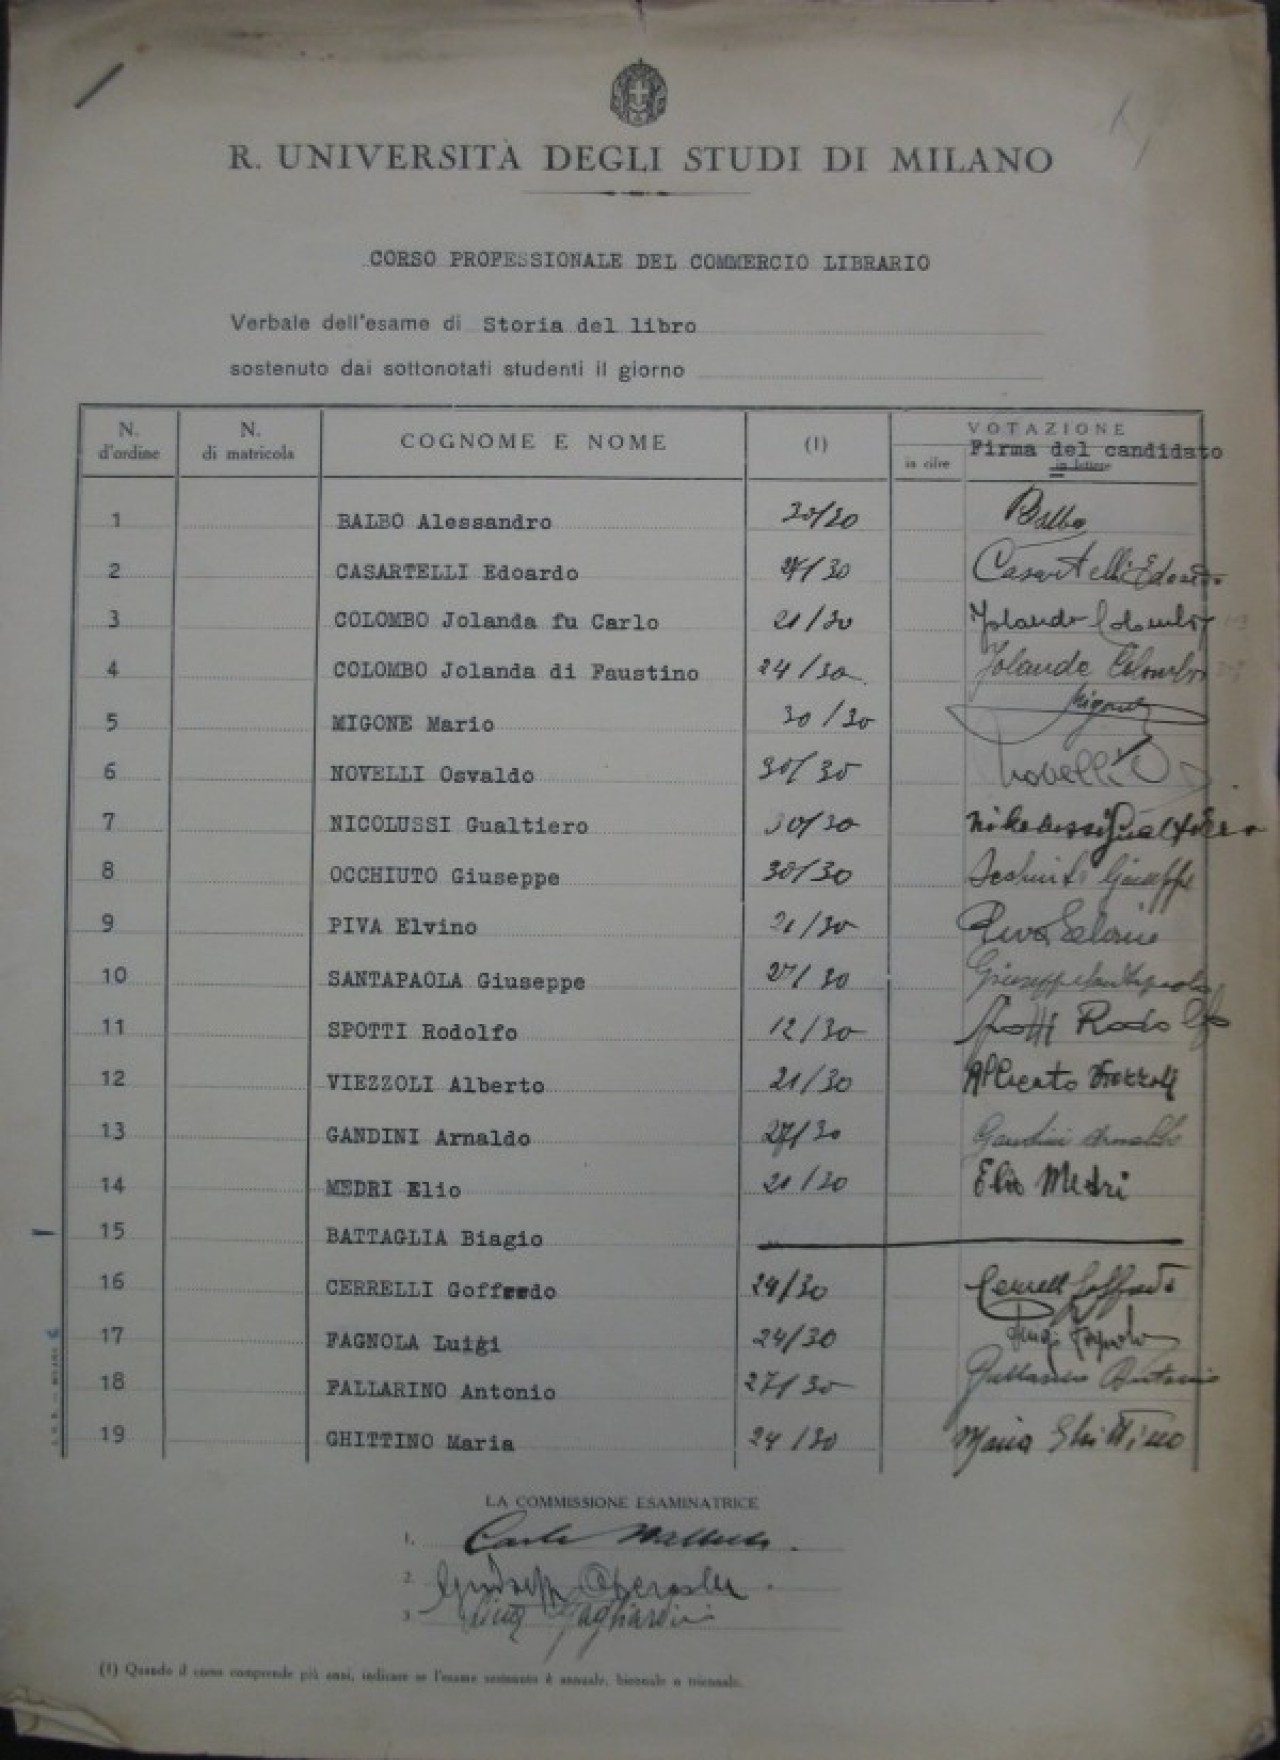 R. UNIVERSITÀ DEGLI STUDI DI MILANO
CORSO PROFESSIONALE DEL COMMERCIO LIBRARIO
Verbale dell'esame di Storia del libro
sostenuto dai sottonotati studenti il giorno
N. d'ordine N. di matricola COGNOME E NOME (1) VOTAZIONE
in cifre Firma del candidato in lettere
1 BALBO Alessandro 30/30 Balbo
2 CASARTELLI Edoardo 27/30 Casartelli Edoardo
3 COLOMBO Jolanda fu Carlo 21/30 Jolanda Colombo
4 COLOMBO Jolanda di Faustino 24/30 Jolanda Colombo
5 MIGONE Mario 30/30 Migone
6 NOVELLI Osvaldo 30/30 Novelli O
7 NICOLUSSI Gualtiero 30/30 Nikolussi Gualtiero
8 OCCHIUTO Giuseppe 30/30 Giuseppe
9 PIVA Elvino 21/30 Piva Elvino
10 SANTAPAOLA Giuseppe 27/30 Giuseppe Santapaola
11 SPOTTI Rodolfo 12/30 Spotti Rodolfo
12 VIEZZOLI Alberto 21/30 Alberto Viezzoli
13 GANDINI Arnaldo 27/30 Gandini Arnaldo
14 MEDRI Elio 21/30 Elio Medri
15 BATTAGLIA Biagio
16 CERRELLI Goffredo 24/30 Cerrelli Goffredo
17 FAGNOLA Luigi 24/30 Luigi Fagnola
18 FALLARINO Antonio 27/30 Fallarino Antonio
19 GHITTINO Maria 24/30 Maria Ghittino
LA COMMISSIONE ESAMINATRICE
1. Carlo
2.
3 Tagliardini
(1) Quando il corso comprende più anni, indicare se l'esame sostenuto è annuale, biennale o triennale.